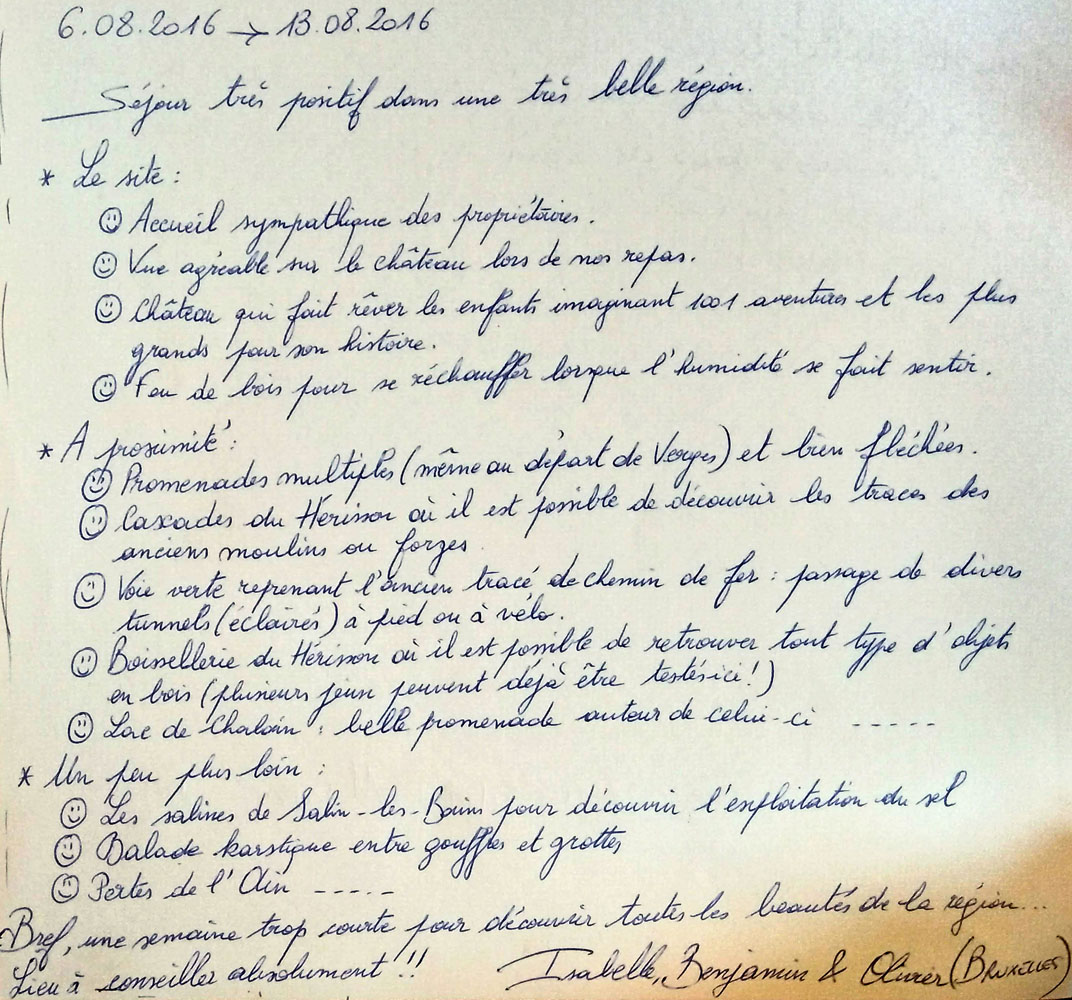 6.08.2016 → 13.08.2016
Séjour très positif dans une très belle région.
* Le site :
☺ Accueil sympathique des propriétaires.
☺ Vue agréable sur le château lors de nos repas.
☺ Château qui fait rêver les enfants imaginant 1001 aventures et les plus
grands pour son histoire.
☺ Feu de bois pour se réchauffer lorsque l'humidité se fait sentir.
* A proximité :
☺ Promenades multiples (même au départ de Verges) et bien fléchées.
☺ Cascades du Hérisson où il est possible de découvrir les traces des
anciens moulins ou forges.
☺ Voie verte reprenant l'ancien tracé de chemin de fer : passage de divers
tunnels (éclairés) à pied ou à vélo.
☺ Boissellerie du Hérisson où il est possible de retrouver tout type d'objets
en bois (plusieurs jeux peuvent déjà être testés ici !)
☺ Lac de Chalain : belle promenade autour de celui-ci -----
* Un peu plus loin :
☺ Les salines de Salin-les-Bains pour découvrir l'exploitation du sel
☺ Balade karstique entre gouffres et grottes
☺ Pertes de l'Ain -----
Bref, une semaine trop courte pour découvrir toutes les beautés de la région...
Lieu à conseiller absolument !! Isabelle, Benjamin & Olivier (BRUXELLES)